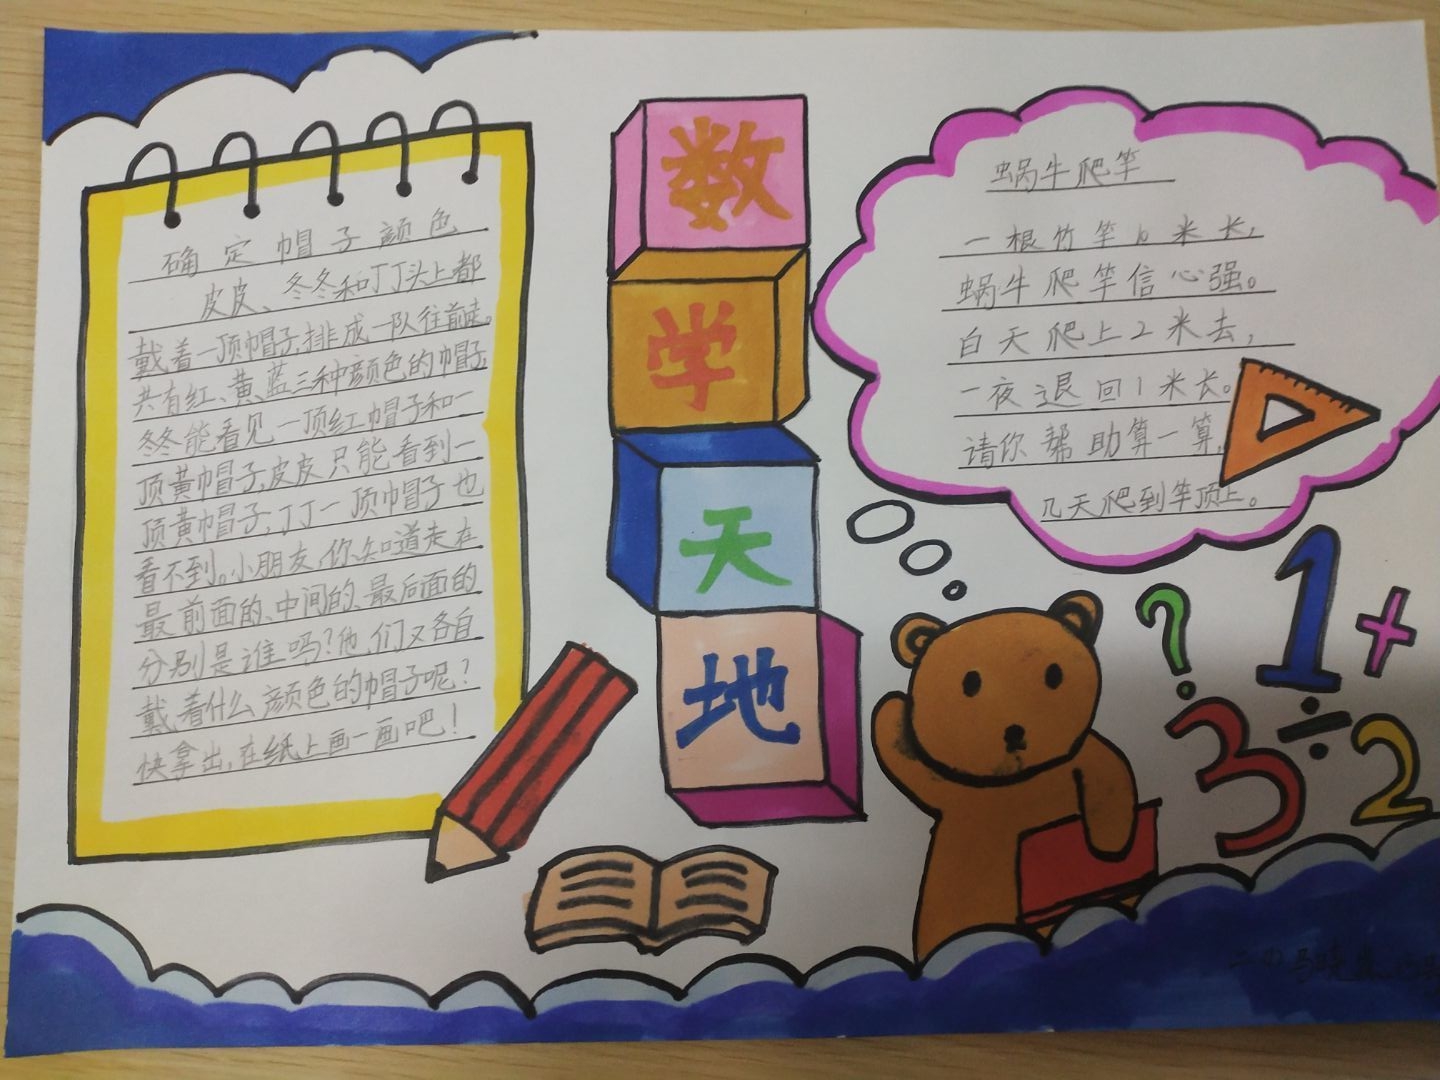 确定帽子颜色
皮皮、冬冬和丁丁头上都
戴着一顶帽子,排成一队往前走。
共有红、黄、蓝三种颜色的帽子,
冬冬能看见一顶红帽子和一
顶黄帽子,皮皮只能看到一
顶黄帽子,丁丁一顶帽子也
看不到。小朋友,你知道走在
最前面的、中间的、最后面的
分别是谁吗?他们又各自
戴着什么颜色的帽子呢?
快拿出,在纸上画一画吧!
数
学
天
地
蜗牛爬竿
一根竹竿10米长,
蜗牛爬竿信心强。
白天爬上2米去,
一夜退回1米长。
请你帮助算一算,
几天爬到竿顶上。
? 1 +
3 ÷ 2